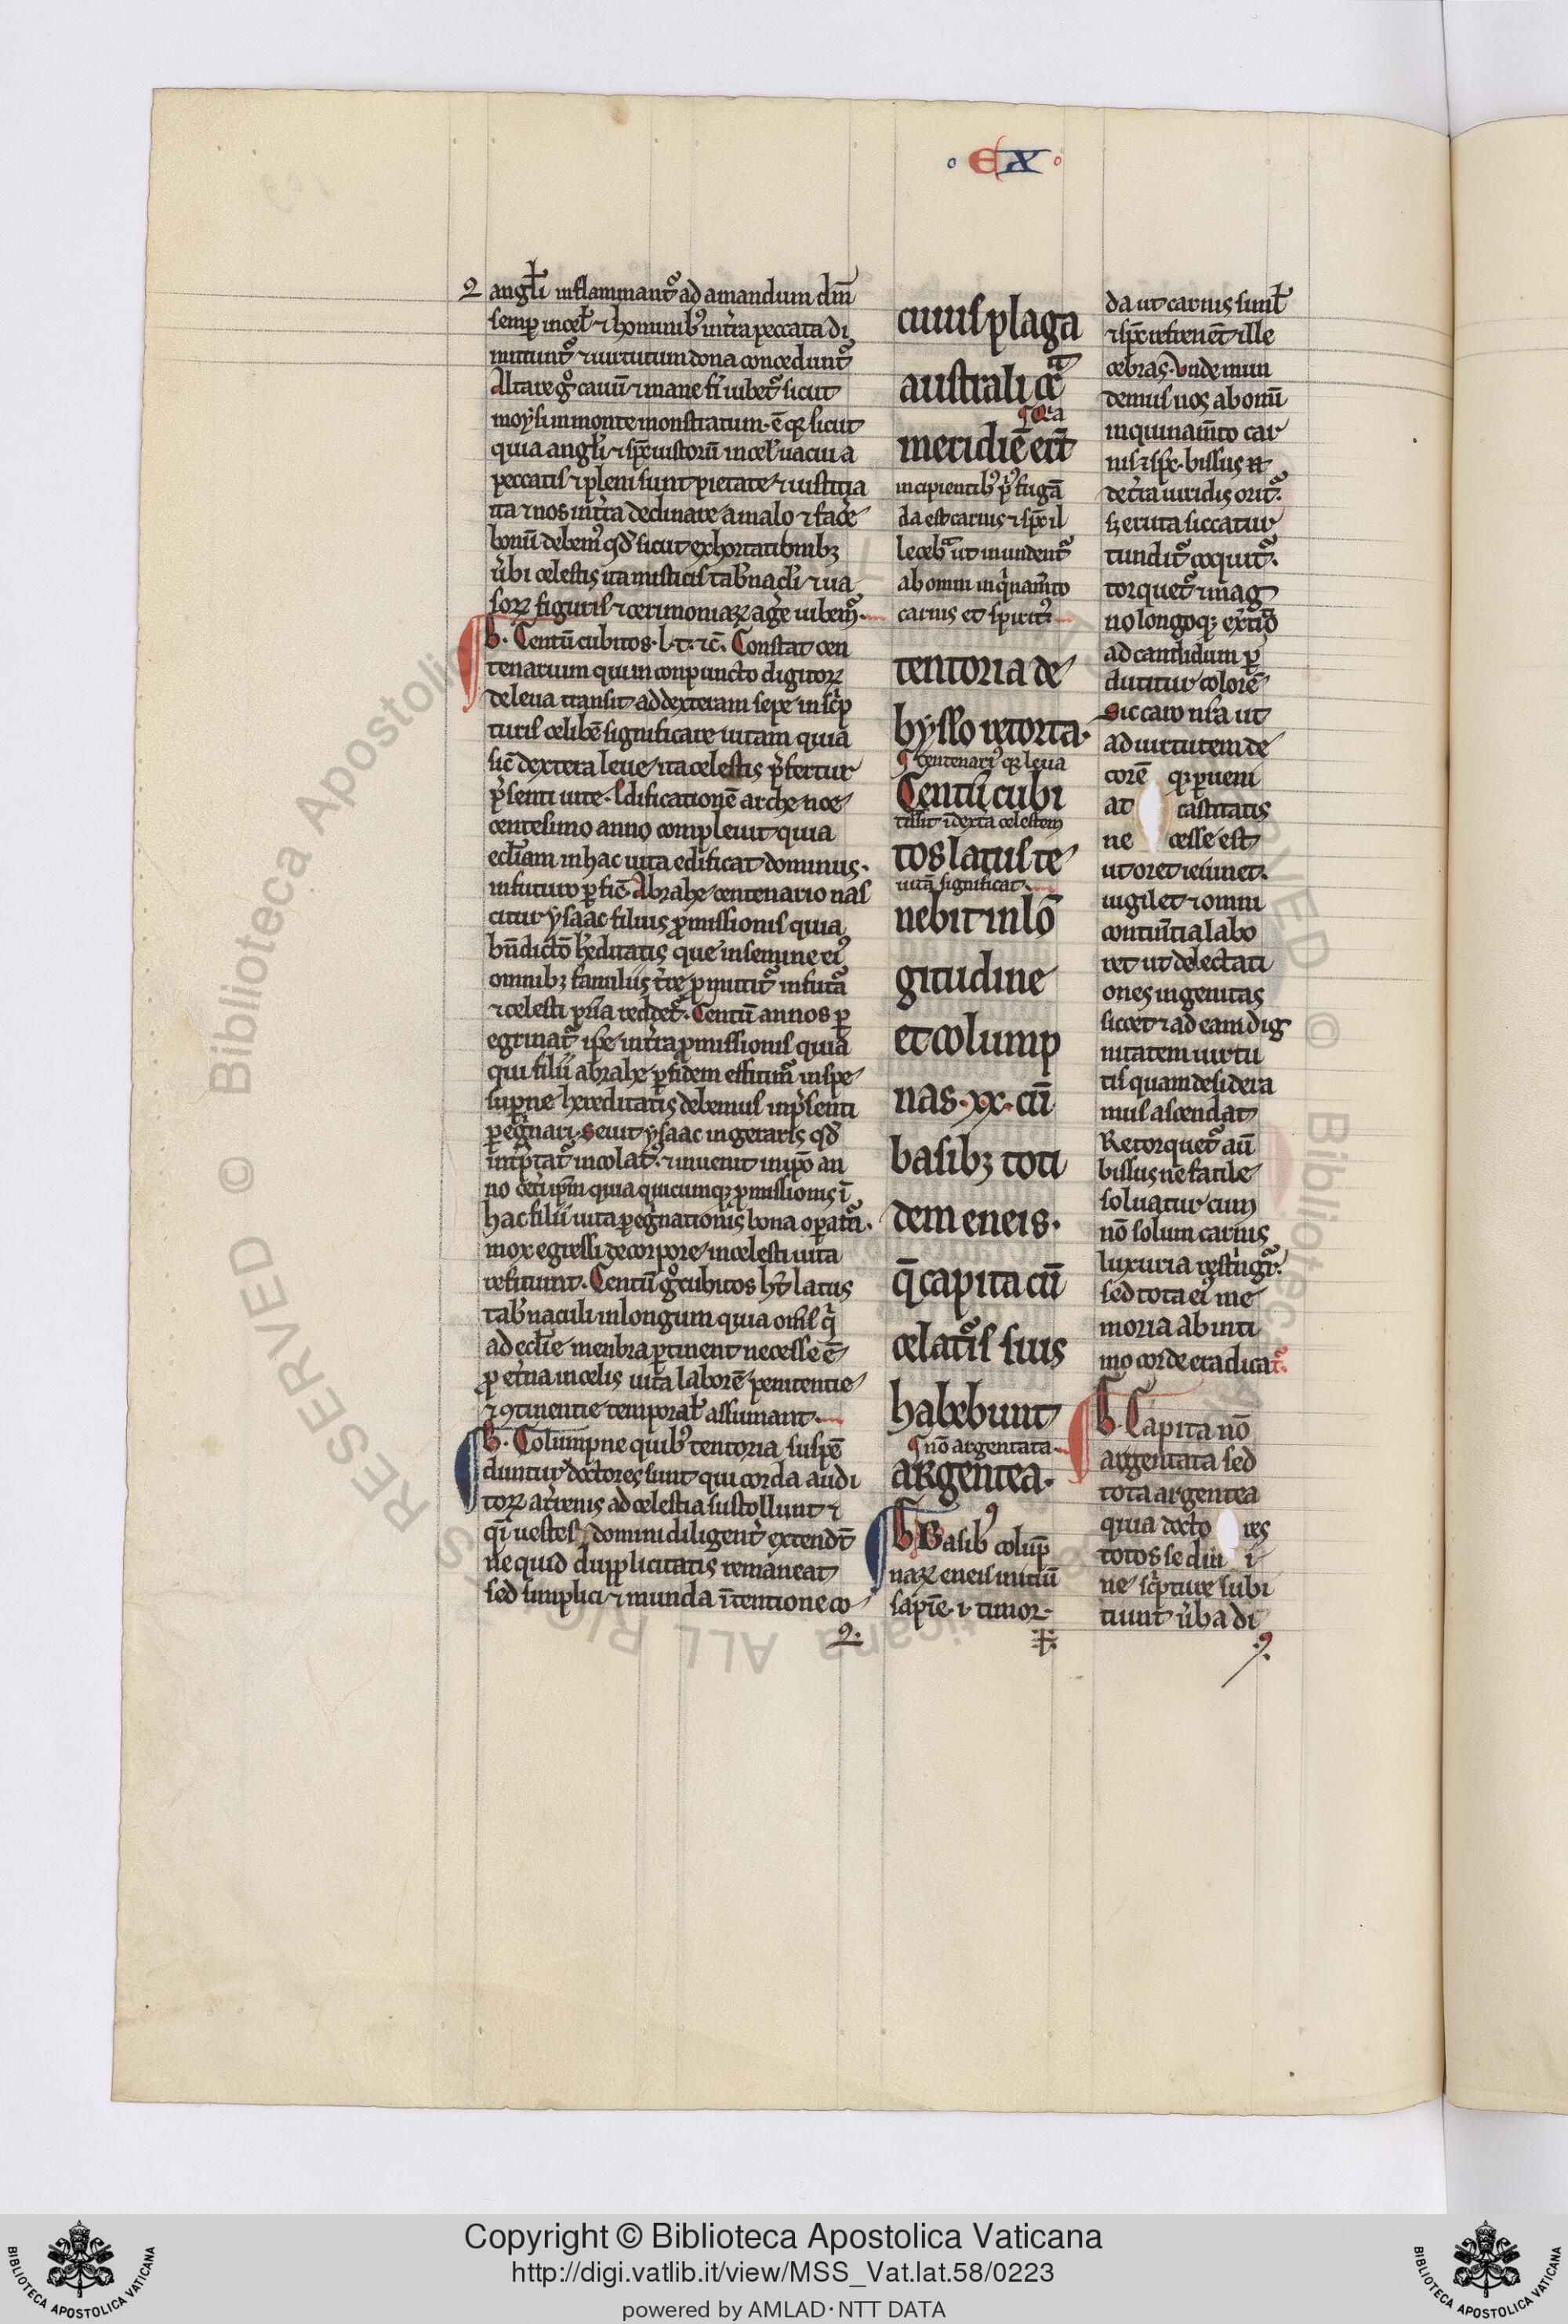 · EX ·
angłi inflammant᷑ ad amandum dm̄
semp̄ in cel̄ ⁊ hominib᷒ in tr̄a peccata di
mittunt᷑ ⁊ uirtutum dona concedunt᷑
Altare g̊ cauū ⁊ inane fi̅ iubet᷑ sicut
moysi in monte monstratum · ē q̄ sicut
quia angłi ⁊ sp̄c iustorū in cel̄ uacui a
peccatis ⁊ pleni sunt pietate ⁊ iustitia
ita ⁊ nos in tr̄a declinare a malo ⁊ facē
bonū debem᷒ qd̄ sicut exhortatibnibꝫ
ūbi celestis ita misticis tab̄nacłi ⁊ ua
soꝝ figuris ⁊ cerimoniaꝝ agē iubem᷑.
b. Centū cubitos · l · t · ⁊c̄. Constat cen
tenarium qui in conpuncto digitoꝝ
de leua transit ad dexteram sepe in sc̄p
turis celibē significare uitam quia
sic̄ dextera leue ita celestis p̄fertur
p̄senti uite · Edificationē arche noe
centesimo anno compleuit quia
eccłiam in hac uita edificat dominus ·
in futuro ꝑfic̄. Abrahe centenario nas
citur ysaac filius ꝓmissionis quia
bn̄dictō h̄editatis que in semine ei᷒
omnibꝫ familiis tr̄e ꝓmittit᷑ in futr̄a
⁊ celesti pr̄ia reddet᷑. Centū annos ꝑ
egrinat᷑ ipse in tr̄a ꝓmissionis quia
qui filii abrahe ꝑ fidem efficim᷑ in spe
suꝑne hereditatis debemus in p̄senti
ꝑegnari · Seuit ysaac in geraris qd̄
int̄p̄tat᷑ incolat᷑ · ⁊ inuenit in ipō an
no cētupm̄ quia quicumqꝫ ꝓmissionis ī
hac filii uita ꝑegnationis bona oꝑatr̄a.
mox egressi de corpore in celesti uita
refitiunt. Centū g̊ cubitos ht̄ latus
tab̄naculi in longum quia om̄s q̄
ad eccłie menbra ꝑtinent necesse ē
ꝓ et̄na in celis uita laborē penitentie
⁊ ꝯtinentie temporał assumant.
b. Columpne quib᷒ tentoria suspē
duntur doctores sunt qui corda audi
toꝝ a tr̄enis ad celestia sustollunt ⁊
q̄i uestes domini diligent̄ extendt̄
ne quid dupplicitatis remaneat
sed simplici ⁊ munda ītentione co
cuius plaga
australi cr̄a
¶ Cr̄a
meridiē erit
incipientib᷒ p̄᷒ fugā
da est carnis ⁊ sp̄c il
leceb̄a ut mundent᷑
ab omni inq̄nam̄to
carnis et spirit᷒
tentoria de
bysso retorta ·
¶ centenari᷒ q̄ leua
Centū cubi
tn̄sit ī dextā celestem
tos latus te
uitā significat.
nebit in lō
gitudine
et colump
nas · xx · cū
basibꝫ toti
dem eneis ·
q̄ capita cū
celat᷑is suis
habebunt
¶ nō argentata
argentea ·
b Basib᷒ colūp
naꝝ eneis initiū
sapīe · i · timor
da ut carnis simł
⁊ sp̄c refrenēt ille
cebras · Vnde mun
demus nos ab omī
inquinam̄to car
nis ⁊ sp̄c · bissus n̄
de tr̄a uiridis orit᷑.
sꝫ eruta siccatur
tundit᷑ coquit᷑.
torquet᷑ ⁊ mag
no longoqꝫ ext̄tio
ad candidum ꝑ
ducitur colorē
Sic caro nr̄a ut
ad uirtutem de
corē qꝫ ꝑueni
at castitatis
ne cesse est
ut oret ieiunet.
uigilet ⁊ omni
contin̄tia labo
ret ut delectati
ones ingenitas
siccet ⁊ ad eam dig
nitatem uirtu
tis quam desidera
mus ascendat
Retorquet᷑ aū
bissus ne facile
soluatur cum
nō solum carnis
luxuria rest̄ngit᷑.
sed tota ei᷒ me
moria ab inti
mo corde eradicat᷑.
b. Capita nō
argentata sed
tota argentea
quia docto res
totos se diu i
ne sc̄pture subi
ciunt ūba di
Copyright © Biblioteca Apostolica Vaticana
http://digi.vatlib.it/view/MSS_Vat.lat.58/0223
powered by AMLAD·NTT DATA